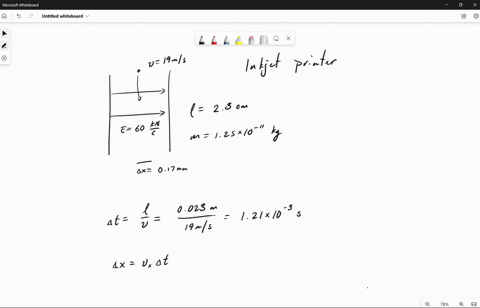 Microsoft Whiteboard
Untitled whiteboard
v = 19 m/s
Inkjet printer
l = 2.3 cm
E = 60 kN/C
m = 1.25 × 10⁻¹¹ kg
Δx = 0.17 mm
Δt = l/v = 0.023 m / 19 m/s = 1.21 × 10⁻³ s
Δx = vₓ Δt
78%